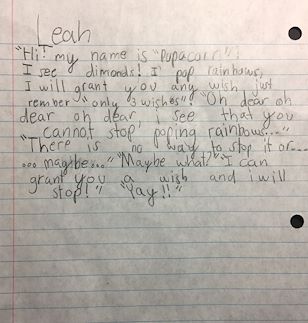 Leah
"Hi! my name is "Pupacorn"!
I see dimonds! I pop rainbows,
I will grant you any wish just
rember "only 3 wishes" "Oh dear oh
dear oh dear, i see that you
cannot stop poping rainbows..."
"There is no way to stop it or....
... magbe..." "Maybe what" "I can
grant you a wish and i will
stop!" "Yay!!"